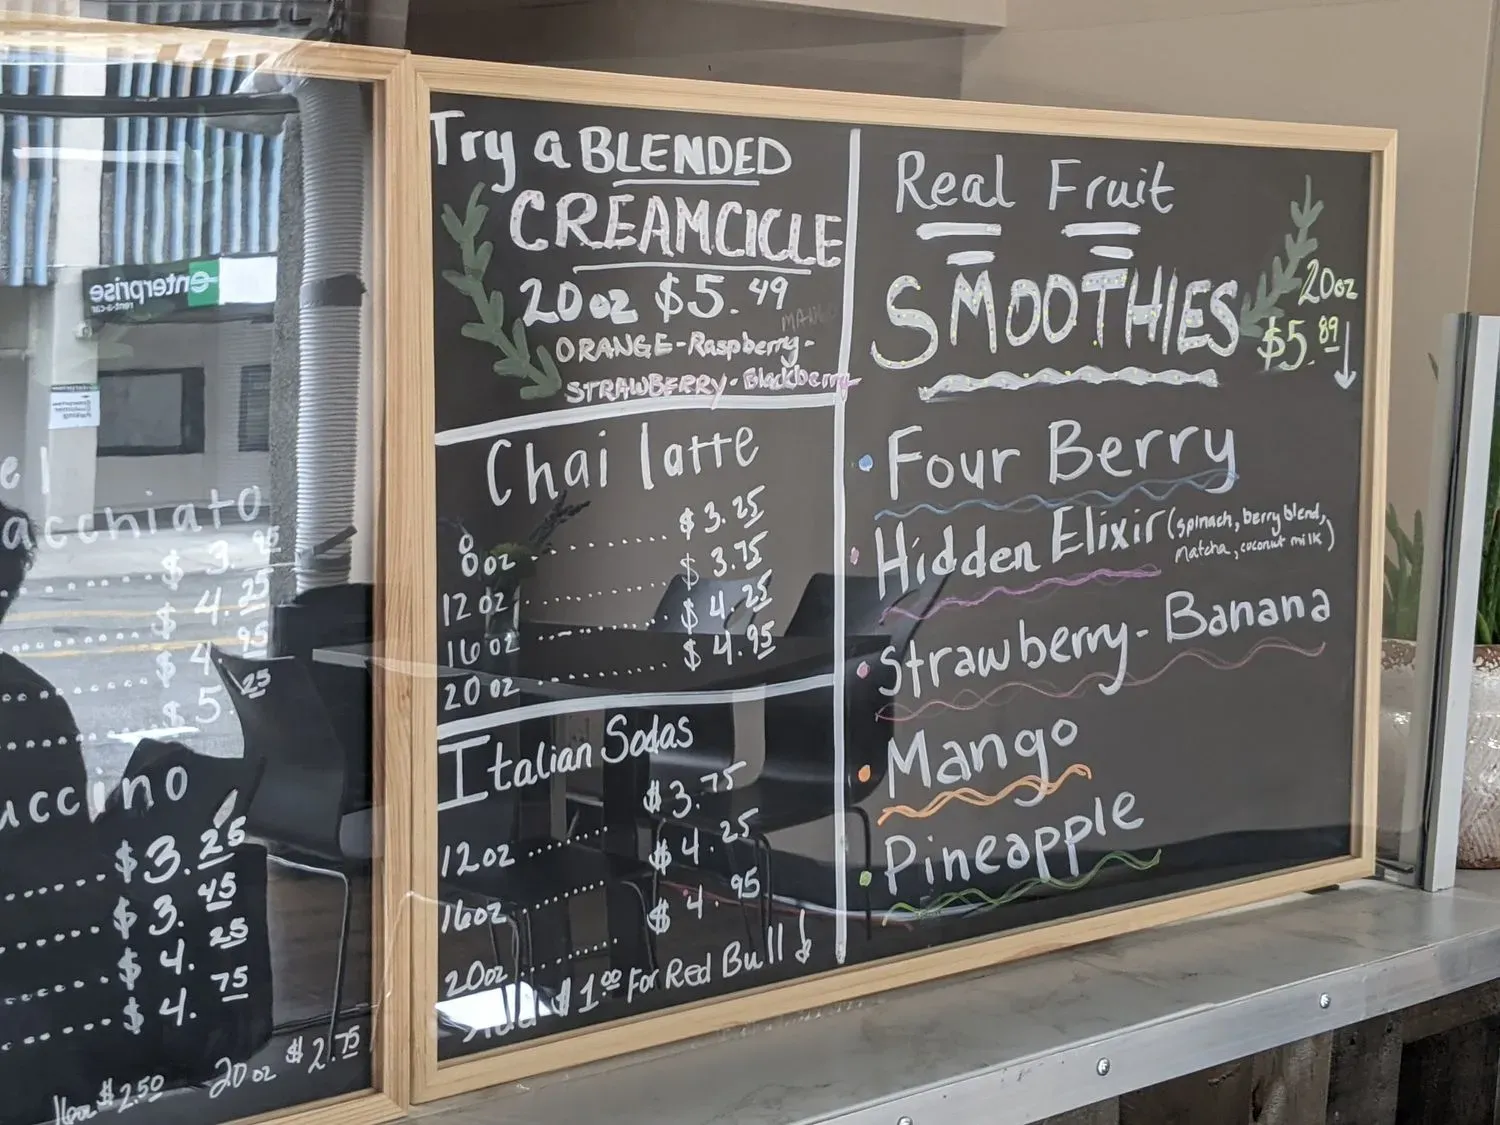 enterprise
rent-a-car
el
acchiato
$3.95
$4.25
$4.95
$5.25
uccino
$3.25
$3.45
$4.25
$4.75
16oz $2.50 20oz $2.75
Try a BLENDED
CREAMCICLE
20oz $5.49
MANGO
ORANGE-Raspberry-
STRAWBERRY-Blackberry
Chai latte
8oz .......... $3.25
12oz .......... $3.75
16oz .......... $4.25
20oz .......... $4.95
Italian Sodas
12oz ........ $3.75
16oz ........ $4.25
20oz ........ $4.95
Add $1.00 For Red Bull
Real Fruit
SMOOTHIES
20oz
$5.89
• Four Berry
• Hidden Elixir (spinach, berry blend,
Matcha, coconut milk)
• Strawberry-Banana
• Mango
• Pineapple